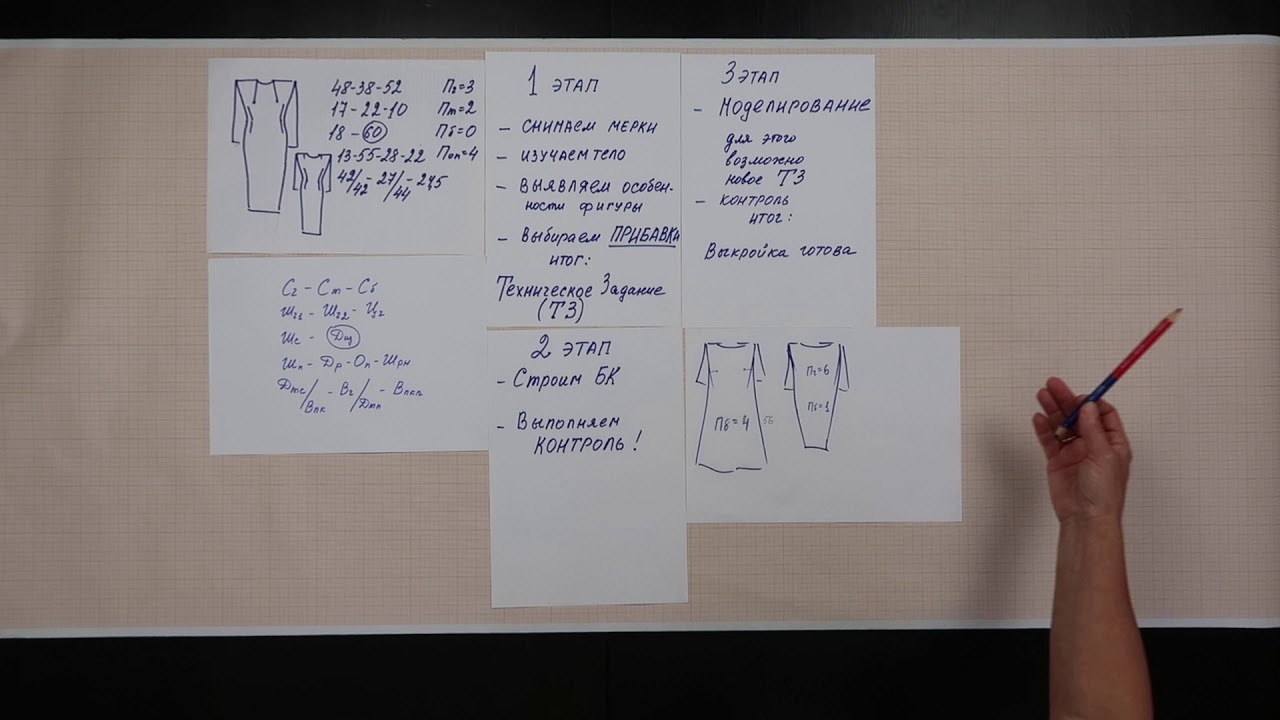 48-38-52 Пг=3
17-22-10 Пт=2
18-60 Пб=0
13-55-28-22 Поп=4
42/42-27/44-27,5
Сг-Ст-Сб
Шг1-Шг2-Цг
Шс-Диз
Шп-Др-Оп-Шрн
Дтс/Впк-Вг/Дтп-Впкп
1 ЭТАП
- СНИМАЕМ МЕРКИ
- ИЗУЧАЕМ ТЕЛО
- ВЫЯВЛЯЕМ ОСОБЕН-
НОСТИ ФИГУРЫ
- Выбираем ПРИБАВКИ
ИТОГ:
Техническое Задание
(ТЗ)
2 ЭТАП
- Строим БК
- Выполняем
КОНТРОЛЬ!
3 ЭТАП
- МОДЕЛИРОВАНИЕ
для этого
возможно
новое ТЗ
- КОНТРОЛЬ
ИТОГ:
Выкройка готова
Пб=4 56
Пг=6
Пб=1